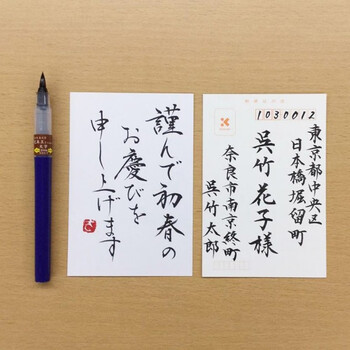 謹んで初春の
お慶びを
申し上げます
1030012
東京都中央区
日本橋堀留町
呉竹花子様
奈良市南京終町
呉竹太郎